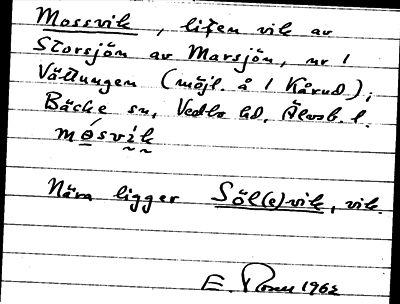 Mossvik, liten vik av
Storsjön av Marsjön, nr 1
Vättungen (möjl. å 1 Kårud),
Bäcke sn, Vedbo hd, Älvsb. l.
mósvik
Nära ligger Söl(e)vik, vik.
E. 1962